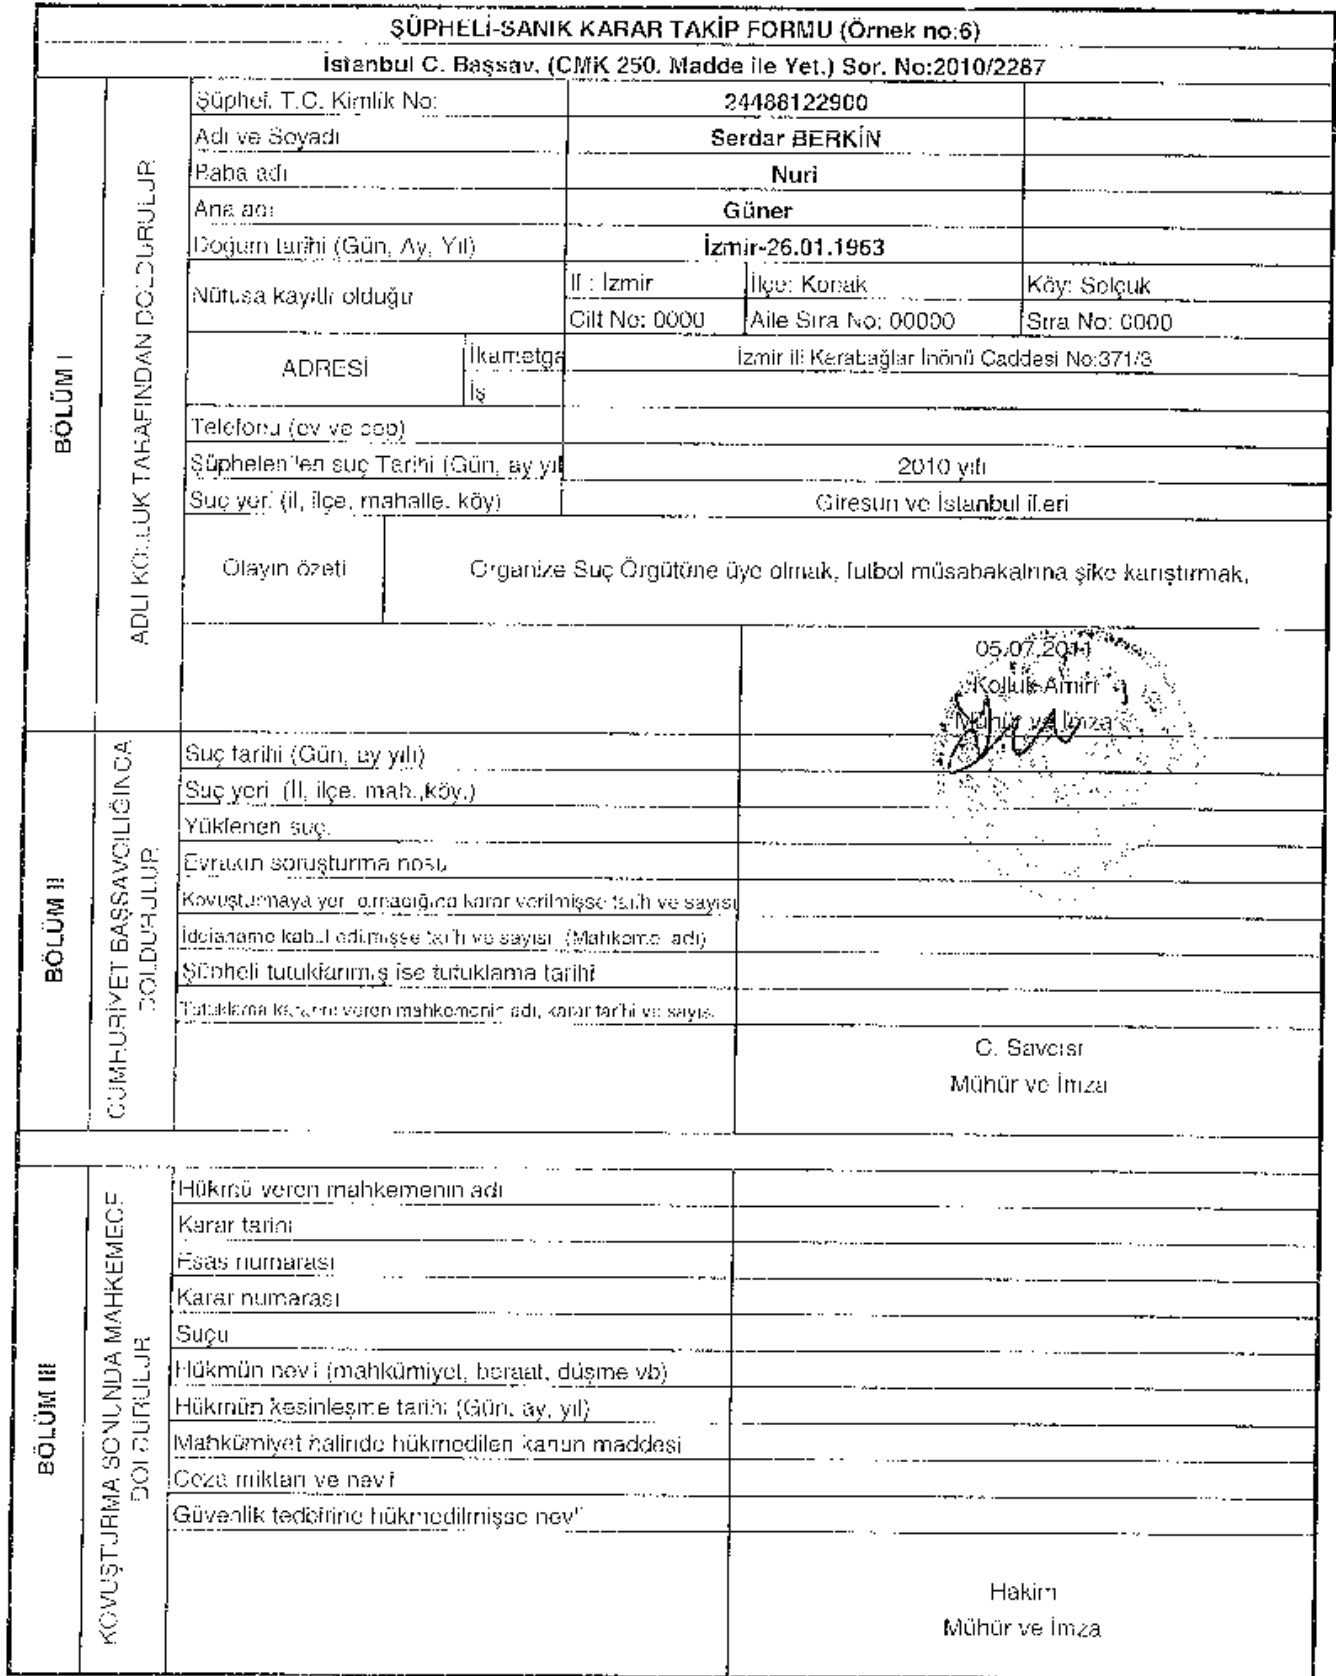 ŞÜPHELİ-SANIK KARAR TAKİP FORMU (Örnek no:6)
İstanbul C. Başsav. (CMK 250. Madde ile Yet.) Sor. No:2010/2287
BÖLÜM I
ADLİ KOLLUK TARAFINDAN DOLDURULUR
Şüpheli T.C. Kimlik No: 24488122900
Adı ve Soyadı Serdar BERKİN
Baba adı Nuri
Ana adı Güner
Doğum tarihi (Gün, Ay, Yıl) İzmir-26.01.1963
Nüfusa kayıtlı olduğu İl : İzmir İlçe: Konak Köy: Selçuk
Cilt No: 0000 Aile Sıra No: 00000 Sıra No: 0000
ADRESİ İkametga İzmir ili Karabağlar İnönü Caddesi No:371/3
İş
Telefonu (ev ve cep)
Şüphelenilen suç Tarihi (Gün, ay yıl 2010 yılı
Suç yeri (il, ilçe, mahalle, köy) Giresun ve İstanbul illeri
Olayın özeti Organize Suç Örgütüne üye olmak, futbol müsabakalrına şike karıştırmak,
05.07.2011
Kolluk Amiri
Mühür ve İmza
BÖLÜM II
CUMHURİYET BAŞSAVCILIĞINCA DOLDURULUR
Suç tarihi (Gün, ay yılı)
Suç yeri (İl, ilçe, mah.,köy.)
Yüklenen suç.
Evrakın soruşturma nosu
Kovuşturmaya yer olmadığına karar verilmişse tarih ve sayısı
İddianame kabul edilmişse tarih ve sayısı (Mahkeme adı)
Şüpheli tutuklanmış ise tutuklama tarihi
Tutuklama kararını veren mahkemenin adı, karar tarihi ve sayısı
C. Savcısı
Mühür ve İmza
BÖLÜM III
KOVUŞTURMA SONUNDA MAHKEMECE DOLDURULUR
Hükmü veren mahkemenin adı
Karar tarihi
Esas numarası
Karar numarası
Suçu
Hükmün nev'i (mahkümiyet, beraat, düşme vb)
Hükmün kesinleşme tarihi (Gün, ay, yıl)
Mahkümiyet halinde hükmedilen kanun maddesi
Ceza miktarı ve nev'i
Güvenlik tedbirine hükmedilmişse nev'i
Hakim
Mühür ve İmza